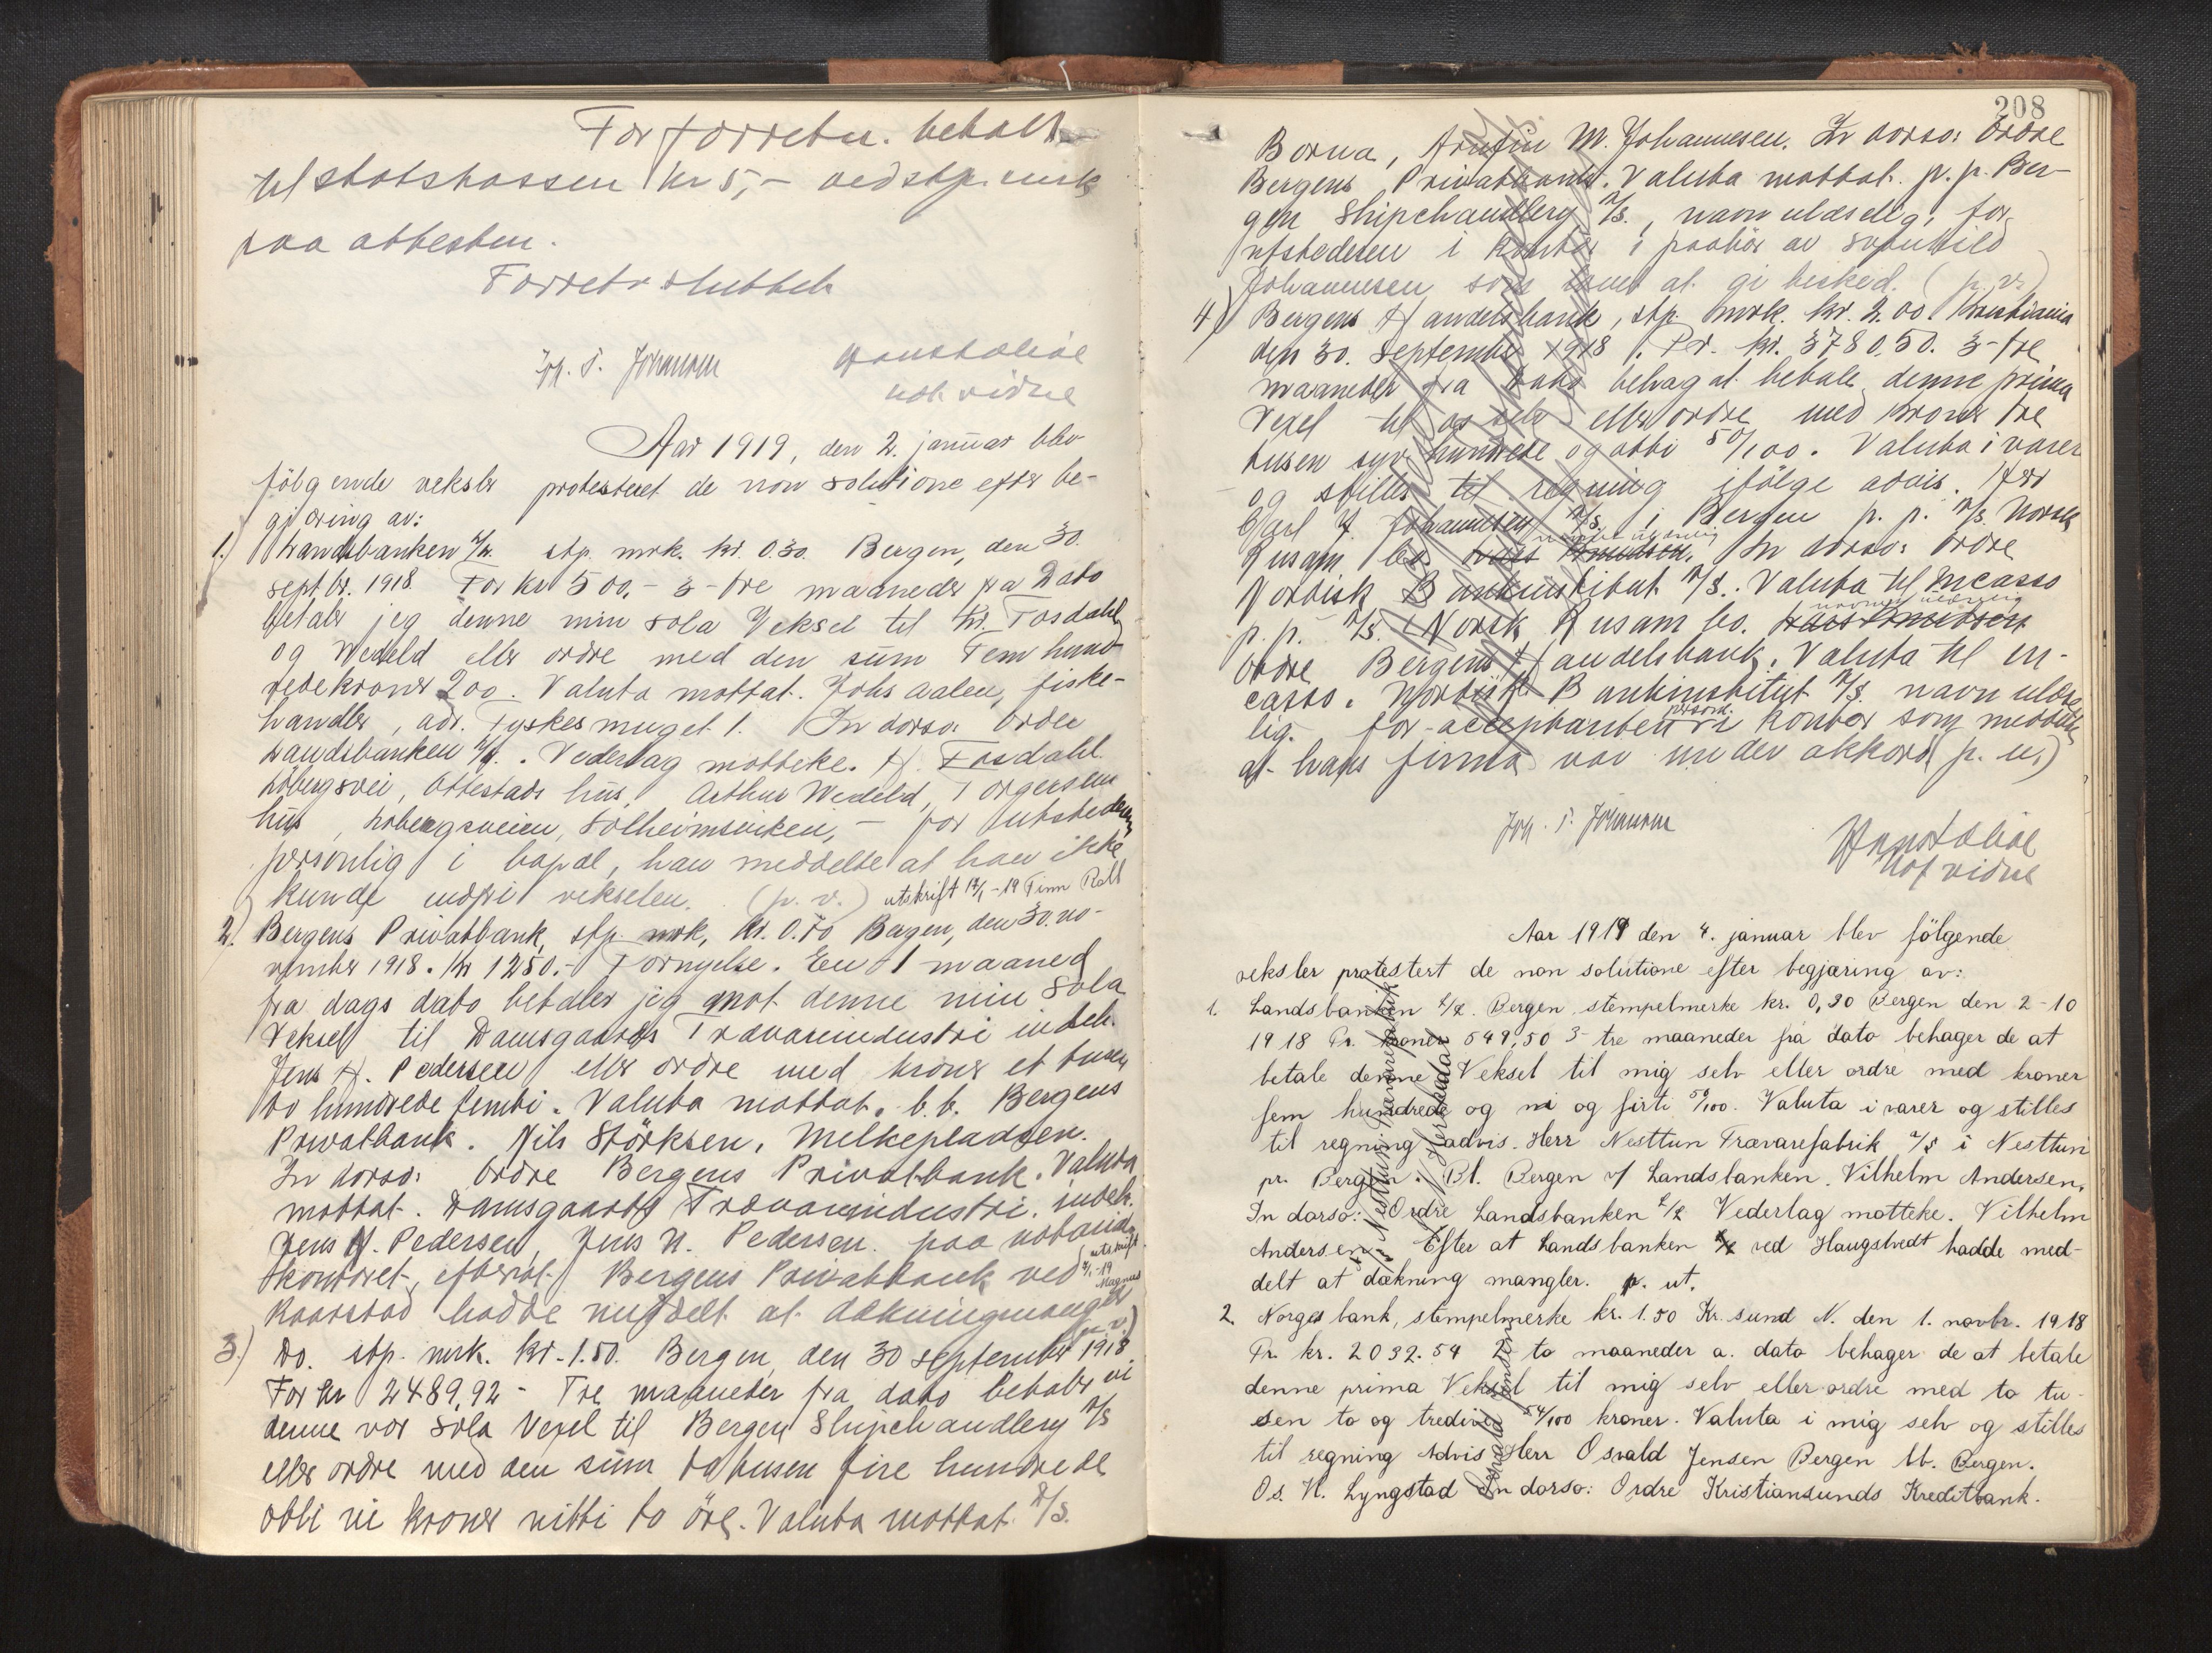 For forretn. betalt
til statskassen kr 5,- ved stp. mrk
paa attesten.
Forretn sluttet
Joh. T. Johansen
not. vidne
Aar 1919, den 2. januar blev
følgende veksler protesteret de non solutione efter be-
gjæring av:
1.) Landsbanken A/S. stp. mrk. kr. 0.30. Bergen, den 30.
septbr. 1918. For kr 500,- 3 - tre maaneder fra Dato
betaler jeg denne min sola Veksel til Hr. Fosdahl
og Wedeld eller ordre med den sum Fem hund-
rede kroner 200. Valuta mottat. Johs Aalen, fiske-
handler, adr. Tyskesmuget 1. In dorso: Ordre
Landsbanken A/S. Vederlag motteke. H. Fosdahl
Løbergsvei, Ottestads hus, Arthur Wedeld, Torgersens
hus, Løbergsveien, Solheimsviken, - for utstederen
personlig i bopæl, han meddelte at han ikke
kunde indfri vekselen. (p. v.) utskrift 17/1-19 Finn
2.) Bergens Privatbank, stp. mrk, kr. 0.70 Bergen, den 30. no-
vember 1918. Kr 1250.- Fornyelse. En 1 maaned
fra dags dato betaler jeg mot denne min Sola
Veksel til Damsgaards Trævareindustri indeh.
Jens H. Pedersen eller ordre med kroner et tusen
to hundrede femti. Valuta mottat. b. b. Bergens
Privatbank. Nils Störksen, Melkepladsen.
In dorso: Ordre Bergens Privatbank. Valuta
mottat. Damsgaards Trævareindustri. indeh.
Jens H. Pedersen, Jens H. Pedersen. paa notarial
kontoret, efterat Bergens Privatbank ved utskrift 4/1-19 Magnus
Kaarstad hadde meddelt at dækning mangler
(p. v.)
3.) Do. stp. mrk. kr. 1.50. Bergen, den 30 september 1918
For kr 2489,92 - Tre maaneder fra dato betaler vi
denne vor Sola Vexel til Bergen Shipchandlery A/S
eller ordre med den sum to tusen fire hundrede
otti ni kroner nitti to öre. Valuta mottat. A/S.
208
Borna, Arnfin M. Johannesen. In dorso: Ordre
Bergens Privatbank. Valuta mottat. p. p. Ber-
gen Shipchandlery A/S., navn ulæselig, for
utstederen i kontor i paahör av Svanhild
Johannesen som lovet at gi besked. (p. v.)
4) Bergens Handelsbank, stp. mrk. kr. 2.00 Kristiania
den 30. september 1918. Pr. kr. 3780,50. 3 - tre
maaneder fra Dato behag at betale denne prima
Vexel til os selv eller ordre med kroner tre
tusen syv hundrede og otti 50/100. Valuta i varer
og stilles til regning ifølge advis. Herr
Carl J. Johannesen A/S. i Bergen p. p. A/S. Norsk
Rusam Co. Lars Knudsen. In dorso: Ordre
Nordisk Bankinstitut A/S. Valuta til incasso
navnet ulæselig
p. p. A/S. Norsk Rusam Co. Lars Knutsen
Ordre Bergens Handelsbank. Valuta til in-
casso. Nordisk Bankinstitut A/S. navn ulæse-
lig. for acceptanten person. i kontor som meddelte
at hans firma var under akkord (p. u.)
Joh. T. Johansen
Not vidne
Aar 1919 den 4. januar blev følgende
veksler protestert de non solutione efter begjæring av:
1. Landsbanken A/S. Bergen stempelmerke kr. 0,30 Bergen den 2-10
1918 Pr. kroner 549,50 3 - tre maaneder fra dato behager de at
betale denne Veksel til mig selv eller ordre med kroner
fem hundrede og ni og firti 50/100. Valuta i varer og stilles
til regning advis. Herr Nesttun Trævarefabrik A/S i Nesttun
pr. Bergen. Bt. Bergen v/ Landsbanken. Vilhelm Andersen.
In dorso: Ordre Landsbanken A/S Vederlag motteke. Vilhelm
Andersen. Efter at Landsbanken A/S ved Haugstvedt hadde med-
delt at dækning mangler. p. ut.
2. Norges bank, stempelmerke kr. 1.50 Kr.sund N. den 1. novbr. 1918
Pr. kr. 2032.54 2 to maaneder a. dato behager de at betale
denne prima Veksel til mig selv eller ordre med to tu-
sen to og tredive 54/100 kroner. Valuta i mig selv og stilles
til regning Advis Herr Osvald Jensen Bergen bb. Bergen.
O.s. N. Lyngstad In dorso: Ordre Kristiansunds Kreditbank.